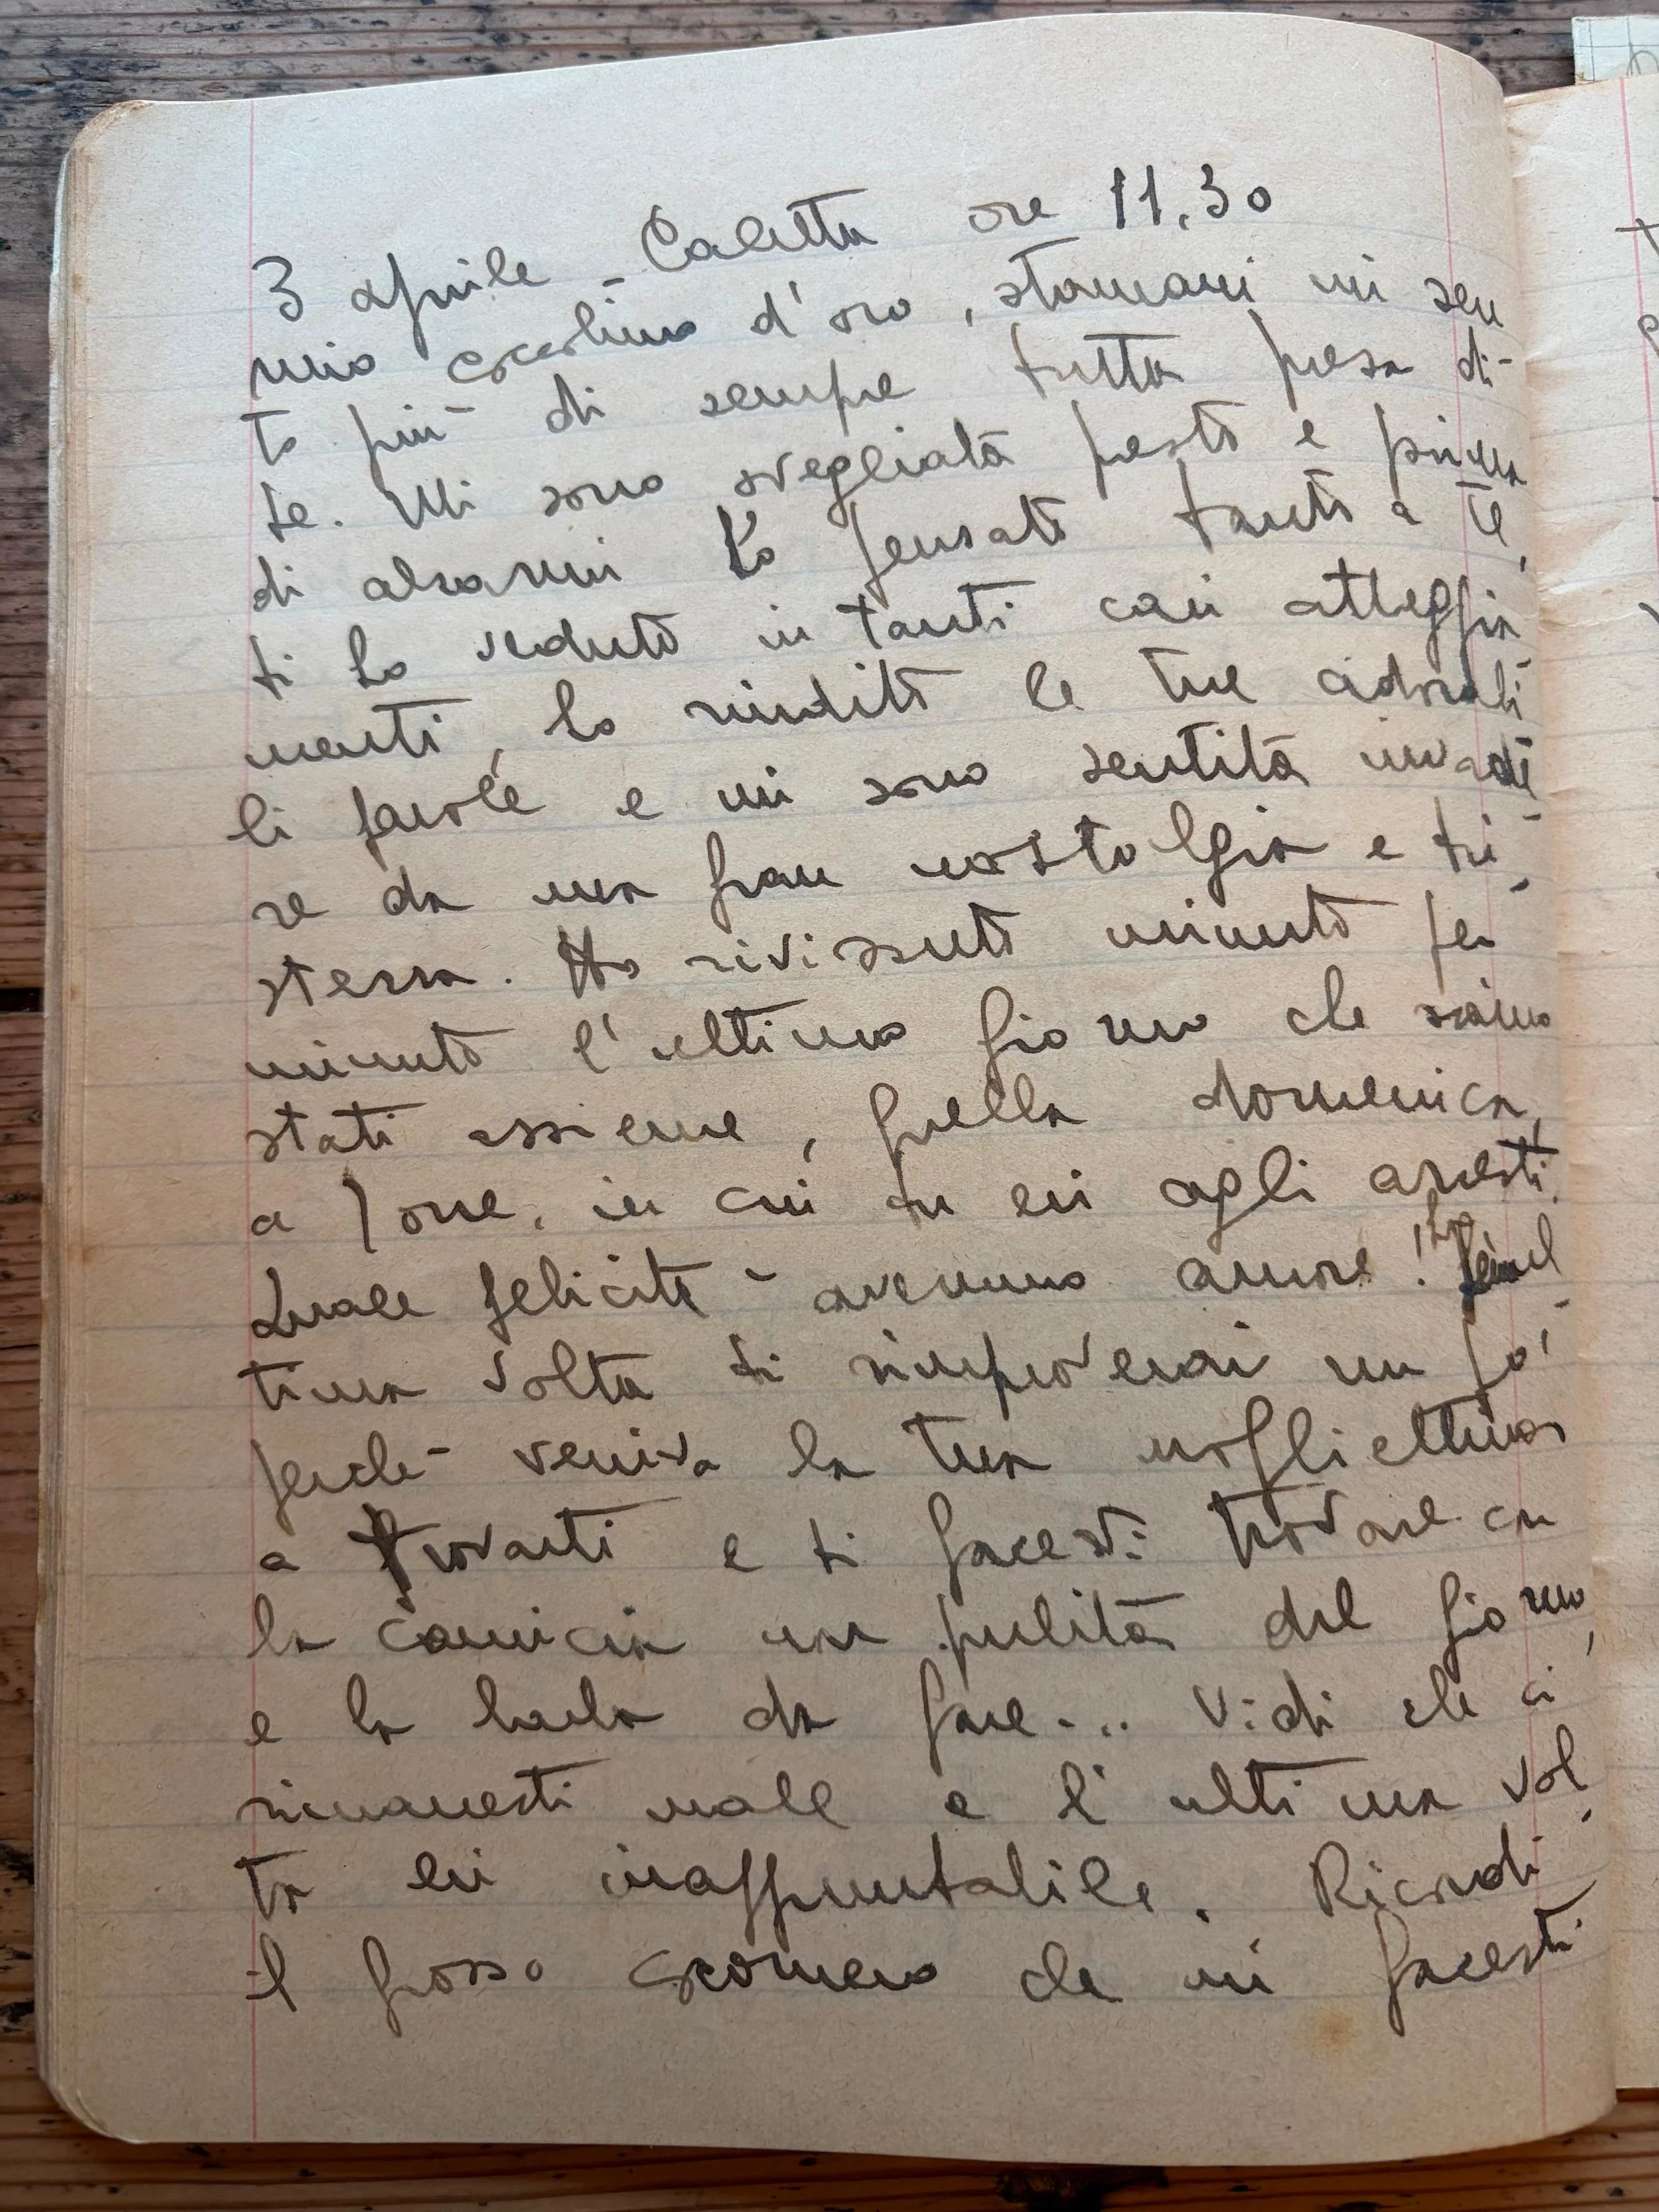 3 aprile - Caletta ore 11,30
mio cocchino d'oro, stamani mi sen
to più di sempre tutta presa di-
te. Mi sono svegliata presto e prima
di alzarmi ho pensato tanto a te,
ti ho veduto in tanti cari atteggia
menti, ho riudito le tue adorabi
li parole e mi sono sentita invade-
re da una gran nostalgia e tri-
stezza. Ho rivissuto minuto per
minuto l'ultimo giorno che siamo
stati assieme, quella domenica,
a Torre, in cui tu eri agli arresti.
Quale felicità avemmo amore! La
tima volta ti rimproverai un po'
perchè veniva la tua mogliettina
a trovarti e ti facesti trovare con
la camicia non pulita del giorno,
e la barba da fare... Vidi che ci
rimanesti male e l'ultima vol-
ta eri inappuntabile. Ricordi
il grosso scorno che mi facesti